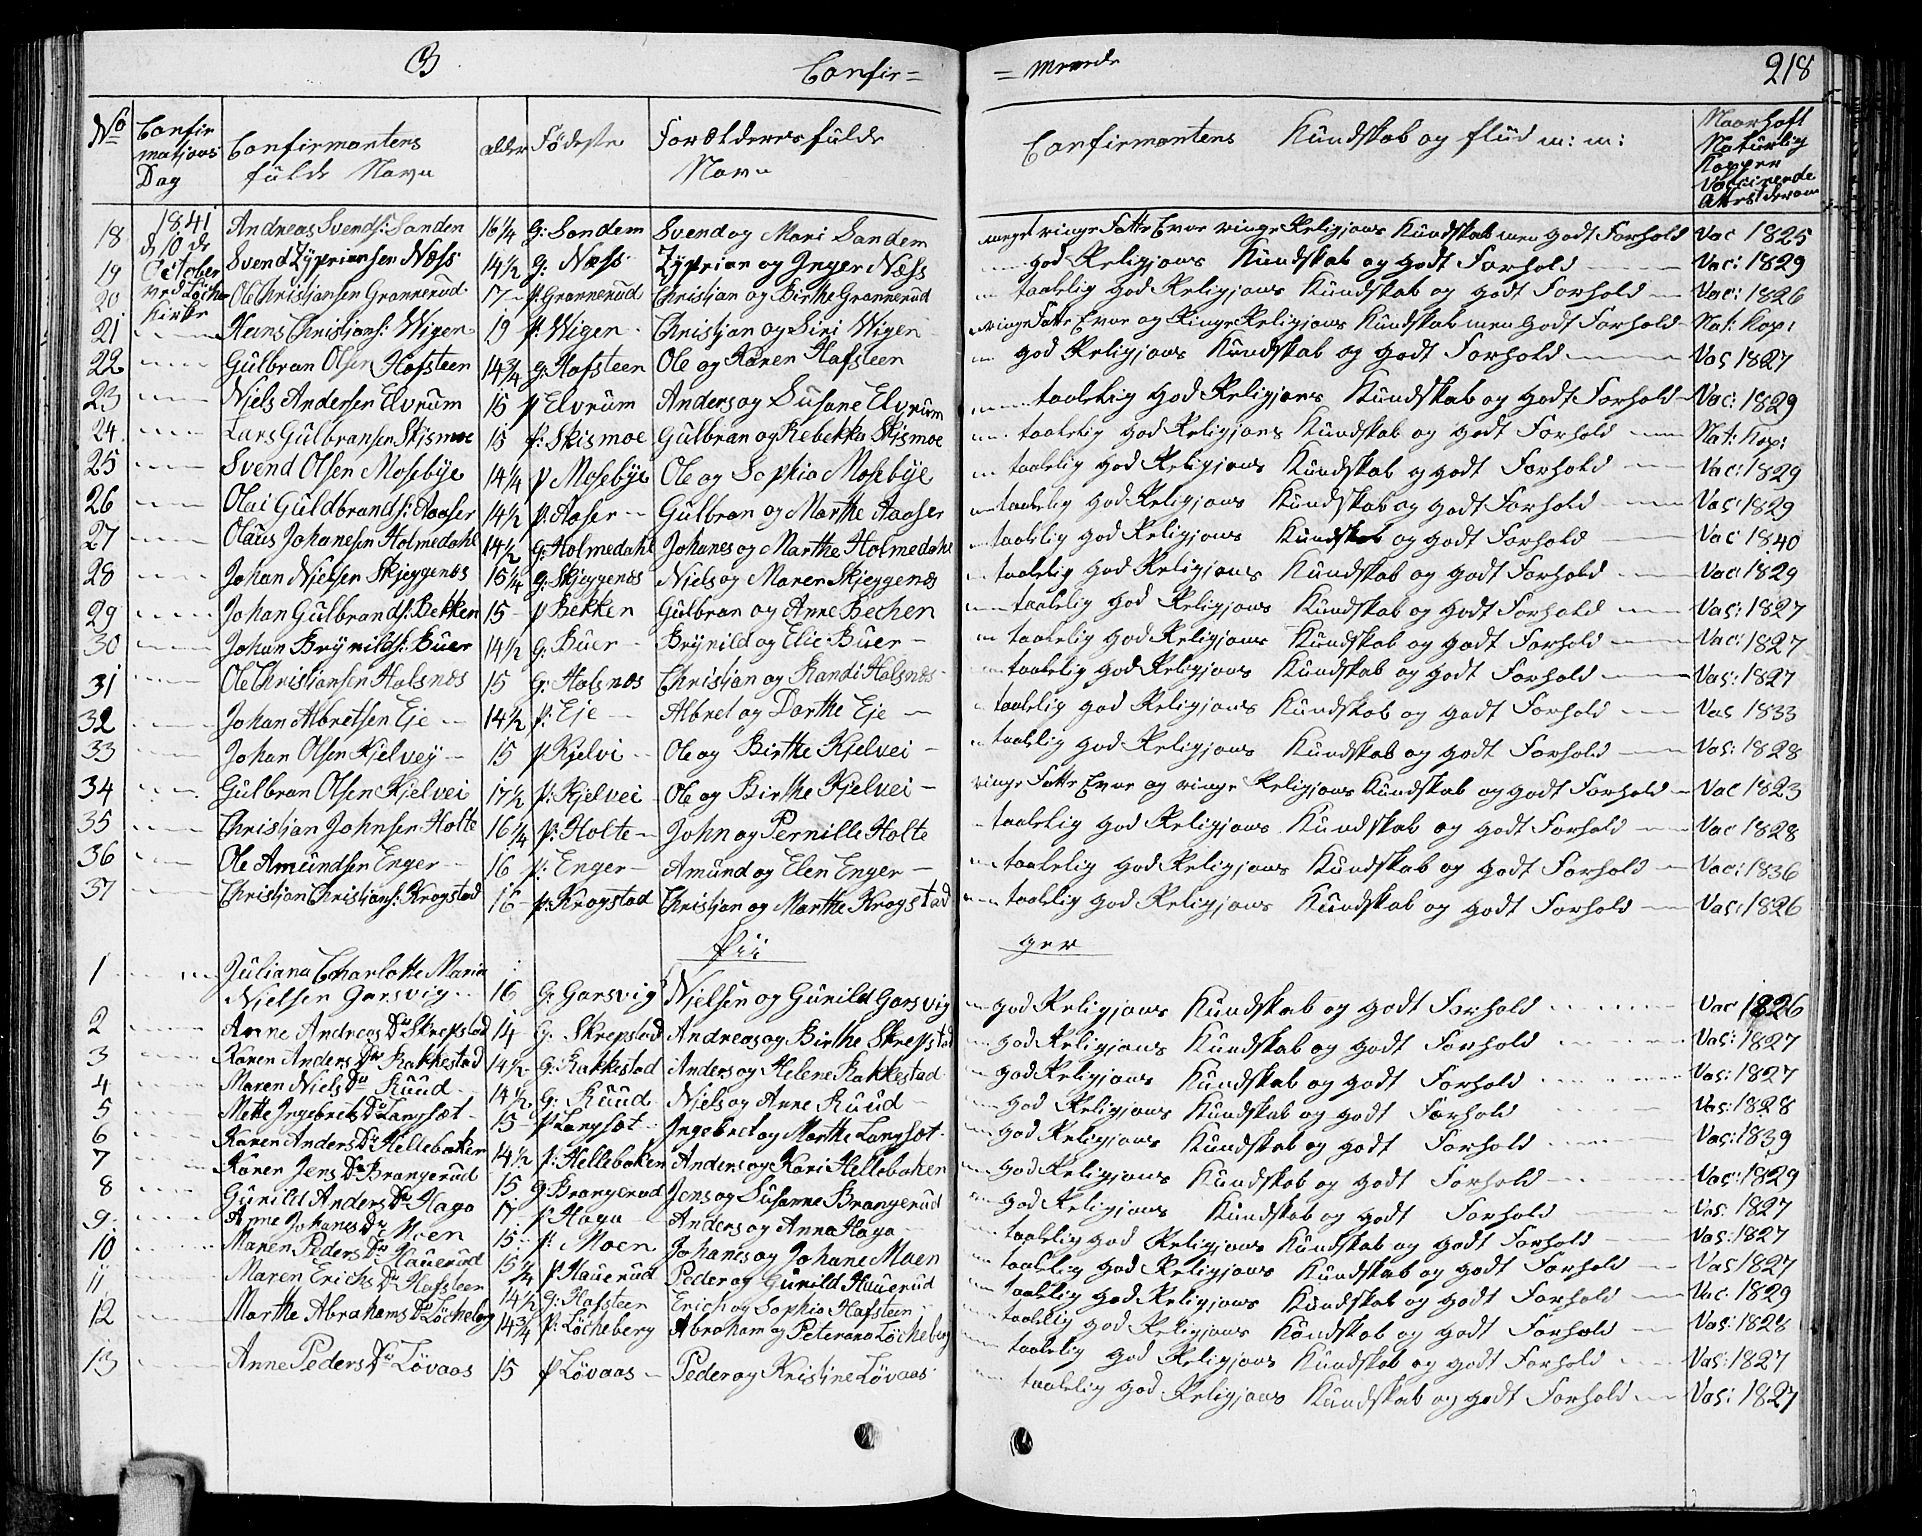 Confir= =merede 218
No Confirmatjons Dag Confirmantens fulde Navn alder Fødeste Forælderes fulde Navn Confirmantens Kundskab og flid m: m: Naarhaft Naturlig Kopper Vaccinerede Attest derom
18 1841 d 10 de Andreas Svends: Sanden 16 1/4 g: Sandem Svend og Mari Sandem meget ringe Fatte Evne ringe Religjons Kundskab men godt Forhold Vac 1825
19 October Svend Zypriansen Næss 14 1/2 g: Næss Zyprian og Inger Næss god Religjons Kundskab og godt Forhold Vac: 1829
20 ved Løche Kirke Ole Christjansen Grannerud 17 p: Grannerud Christjan og Birthe Grannerud taalelig god Religjons Kundskab og godt Forhold Vac: 1826
21 Hans Christjans: Wigen 19 p: Wigen Christjan og Siri Wigen ringe Fatte Evne og Ringe Religjons Kundskab men godt Forhold Nat: Kop:
22 Gulbran Olsen Hafsteen 14 3/4 g: Hafsteen Ole og Karen Hafsteen god Religjons Kundskab og godt Forhold Vac 1827
23 Niels Andersen Elvrum 15 p Elvrum Anders og Susane Elvrum taalelig god Religjons Kundskab og godt Forhold Vac: 1829
24 Lars Gulbransen Skismoe 15 p: Skismoe Gulbran og Rebekka Skismoe taalelig god Religjons Kundskab og godt Forhold Nat: Kop:
25 Svend Olsen Mosebye 14 1/4 p Mosebye Ole og Sophia Mosebye taalelig god Religjons Kundskab og godt Forhold Vac: 1829
26 Olai Guldbrands: Aaser 14 1/2 p: Aaser Gulbran og Marthe Aaser taalelig god Religjons Kundskab og godt Forhold Vac: 1829
27 Olaus Johanesen Holmedahl 14 1/2 g: Holmedahl Johanes og Marthe Holmedahl taalelig god Religjons Kundskab og godt Forhold Vac 1840
28 Johan Nielsen Skjeggenæs 15 1/4 g: Skjeggenæs Niels og Maren Skjeggenæs taalelig god Religjons Kundskab og godt Forhold Vac: 1829
29 Johan Gulbrands: Bekken 15 p Bekken Gulbran og Anne Bechen taalelig god Religjons Kundskab og godt Forhold Vac: 1827
30 Johan Brynilds: Buer 14 1/2 g: Buer Brynild og Elie Buer taalelig god Religjons Kundskab og godt Forhold Vac: 1827
31 Ole Christjansen Halsnæs 15 g: Halsnæs Christjan og Randi Halsnæs taalelig god Religjons Kundskab og godt Forhold Vac: 1827
32 Johan Albretsen Eje 14 1/2 p: Eje Albret og Dorthe Eje taalelig god Religjons Kundskab og godt Forhold Vac 1833
33 Johan Olsen Kjelvey 15 p Kjelvi Ole og Birthe Kjelvei taalelig god Religjons Kundskab og godt Forhold Vac: 1828
34 Gulbran Olsen Kjelvei 17 1/2 p: Kjelvei Ole og Birthe Kjelvei ringe Fatte Evne og ringe Religjons Kundskab og godt Forhold Vac 1823
35 Christjan Johnsen Holte 16 1/4 p: Holte John og Pernille Holte taalelig god Religjons Kundskab og godt Forhold Vac 1828
36 Ole Amundsen Enger 16 p: Enger Amund og Elen Enger taalelig god Religjons Kundskab og godt Forhold Vac: 1836
37 Christjan Christjans: Krogstad 16 p: Krogstad Christjan og Marthe Krogstad taalelig god Religjons Kundskab og godt Forhold Vac: 1826
Pii ger
1 Juliana Charlotte Maria
Nielsen Garsvig 16 g: Garsvig Nielsen og Gunild Garsvig god Religjons Kundskab og godt Forhold Vac 1826
2 Anne Andreas Dr Skrepstad 14 g: Skrepstad Andreas og Birthe Skrepstad god Religjons Kundskab og godt Forhold Vac: 1827
3 Karen Anders Dr Rakkestad 14 1/2 g: Rakkestad Anders og Helene Rakkestad god Religjons Kundskab og godt Forhold Vac: 1827
4 Maren Niels Dr Ruud 14 1/2 g: Ruud Niels og Anne Ruud god Religjons Kundskab og godt Forhold Vac: 1828
5 Mette Ingebrets Dr Langsæt 15 p Langsæt Ingebret og Marthe Langsæt god Religjons Kundskab og godt Forhold Vac: 1839
6 Karen Anders Dr Helleboken 14 1/2 p: Helleboken Anders og Kari Helleboken god Religjons Kundskab og godt Forhold Vac: 1829
7 Karen Jens Dr Brangerud 15 g Brangerud Jens og Susanne Brangerud god Religjons Kundskab og godt Forhold Vac 1827
8 Gunild Anders Dr Haga 17 p Haga Anders og Anna Haga taalelig god Religjons Kundskab og godt Forhold Vac: 1827
9 Anne Johanes Dr Moen 15 p: Moen Johanes og Johane Moen taalelig god Religjons Kundskab og godt Forhold Vac 1827
10 Maren Peders Dr Hauerud 15 1/4 p Hauerud Peder og Gunild Hauerud taalelig god Religjons Kundskab og godt Forhold Vac 1829
11 Maren Erichs Dr Hafsteen 14 1/2 g: Hafsteen Erich og Sophia Hafsteen taalelig god Religjons Kundskab og godt Forhold Vac: 1828
12 Marthe Abrahams Dr Løcheberg 14 3/4 p: Løcheberg Abraham og Peterana Løcheberg taalelig god Religjons Kundskab og godt Forhold Vac: 1827
13 Anne Peders Dr Løvaas 15 p Løvaas Peder og Kristine Løvaas taalelig god Religjons Kundskab og godt Forhold Vac: 1827